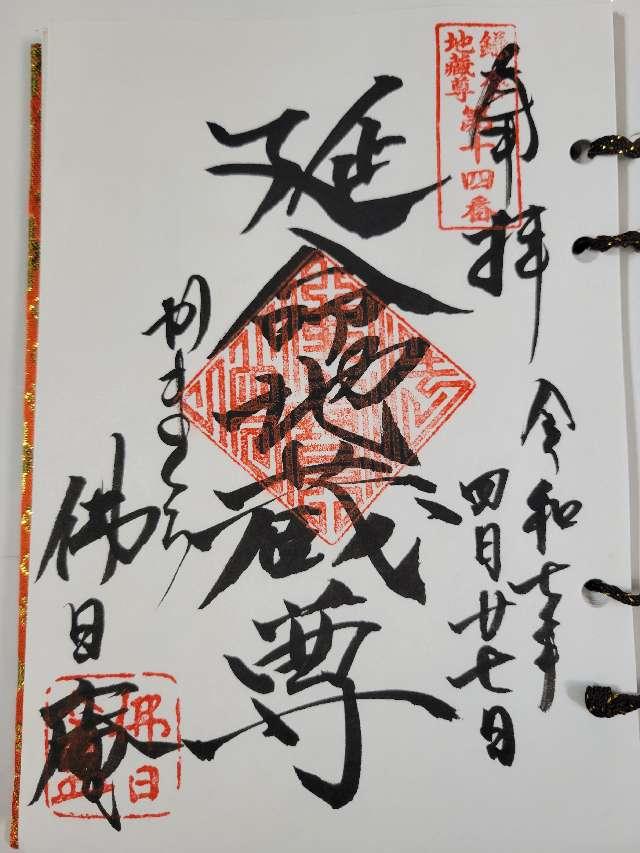 奉拝
鎌倉
地蔵尊
第十四番
令和七年
四月廿七日
延命地蔵尊
かまくら
佛日庵
佛日